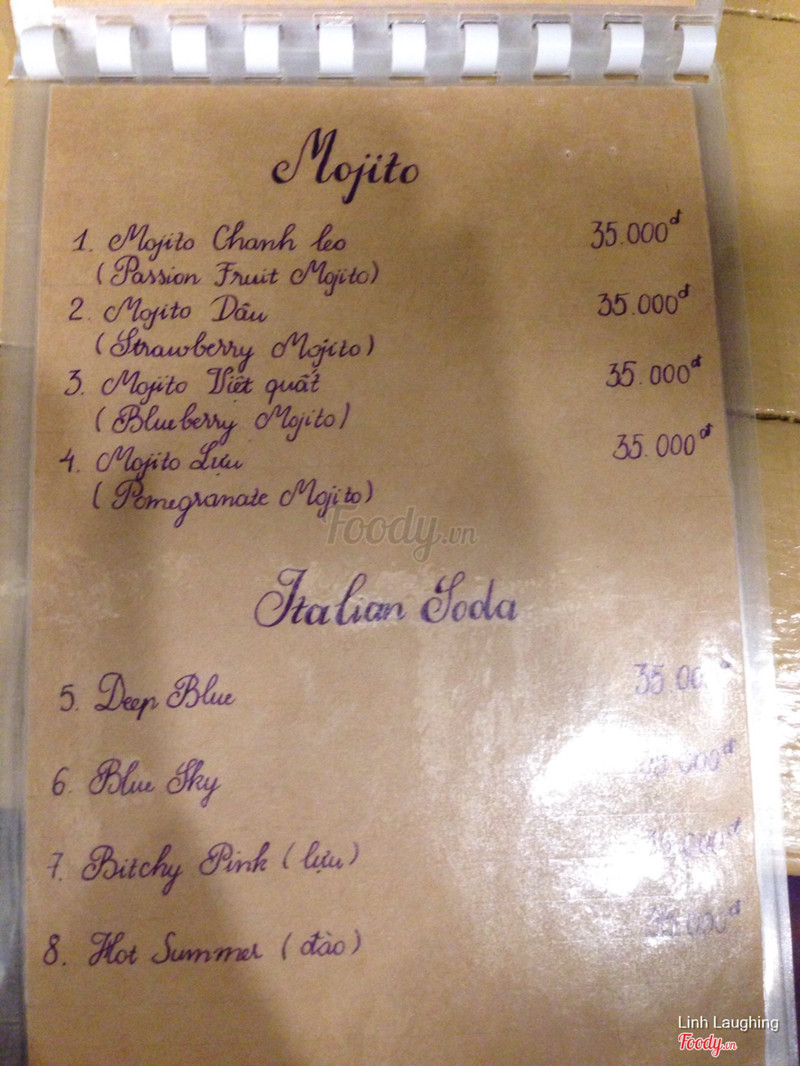 Mojito
1. Mojito Chanh leo 35.000đ
(Passion Fruit Mojito)
2. Mojito Dâu 35.000đ
(Strawberry Mojito)
3. Mojito Việt quất 35.000đ
(Blueberry Mojito)
4. Mojito Lựu 35.000đ
(Pomegranate Mojito)
Foody.vn
Italian Soda
5. Deep Blue
6. Blue Sky
7. Bitchy Pink (lựu)
8. Hot Summer (đào) 35.000đ
Linh Laughing
Foody.vn